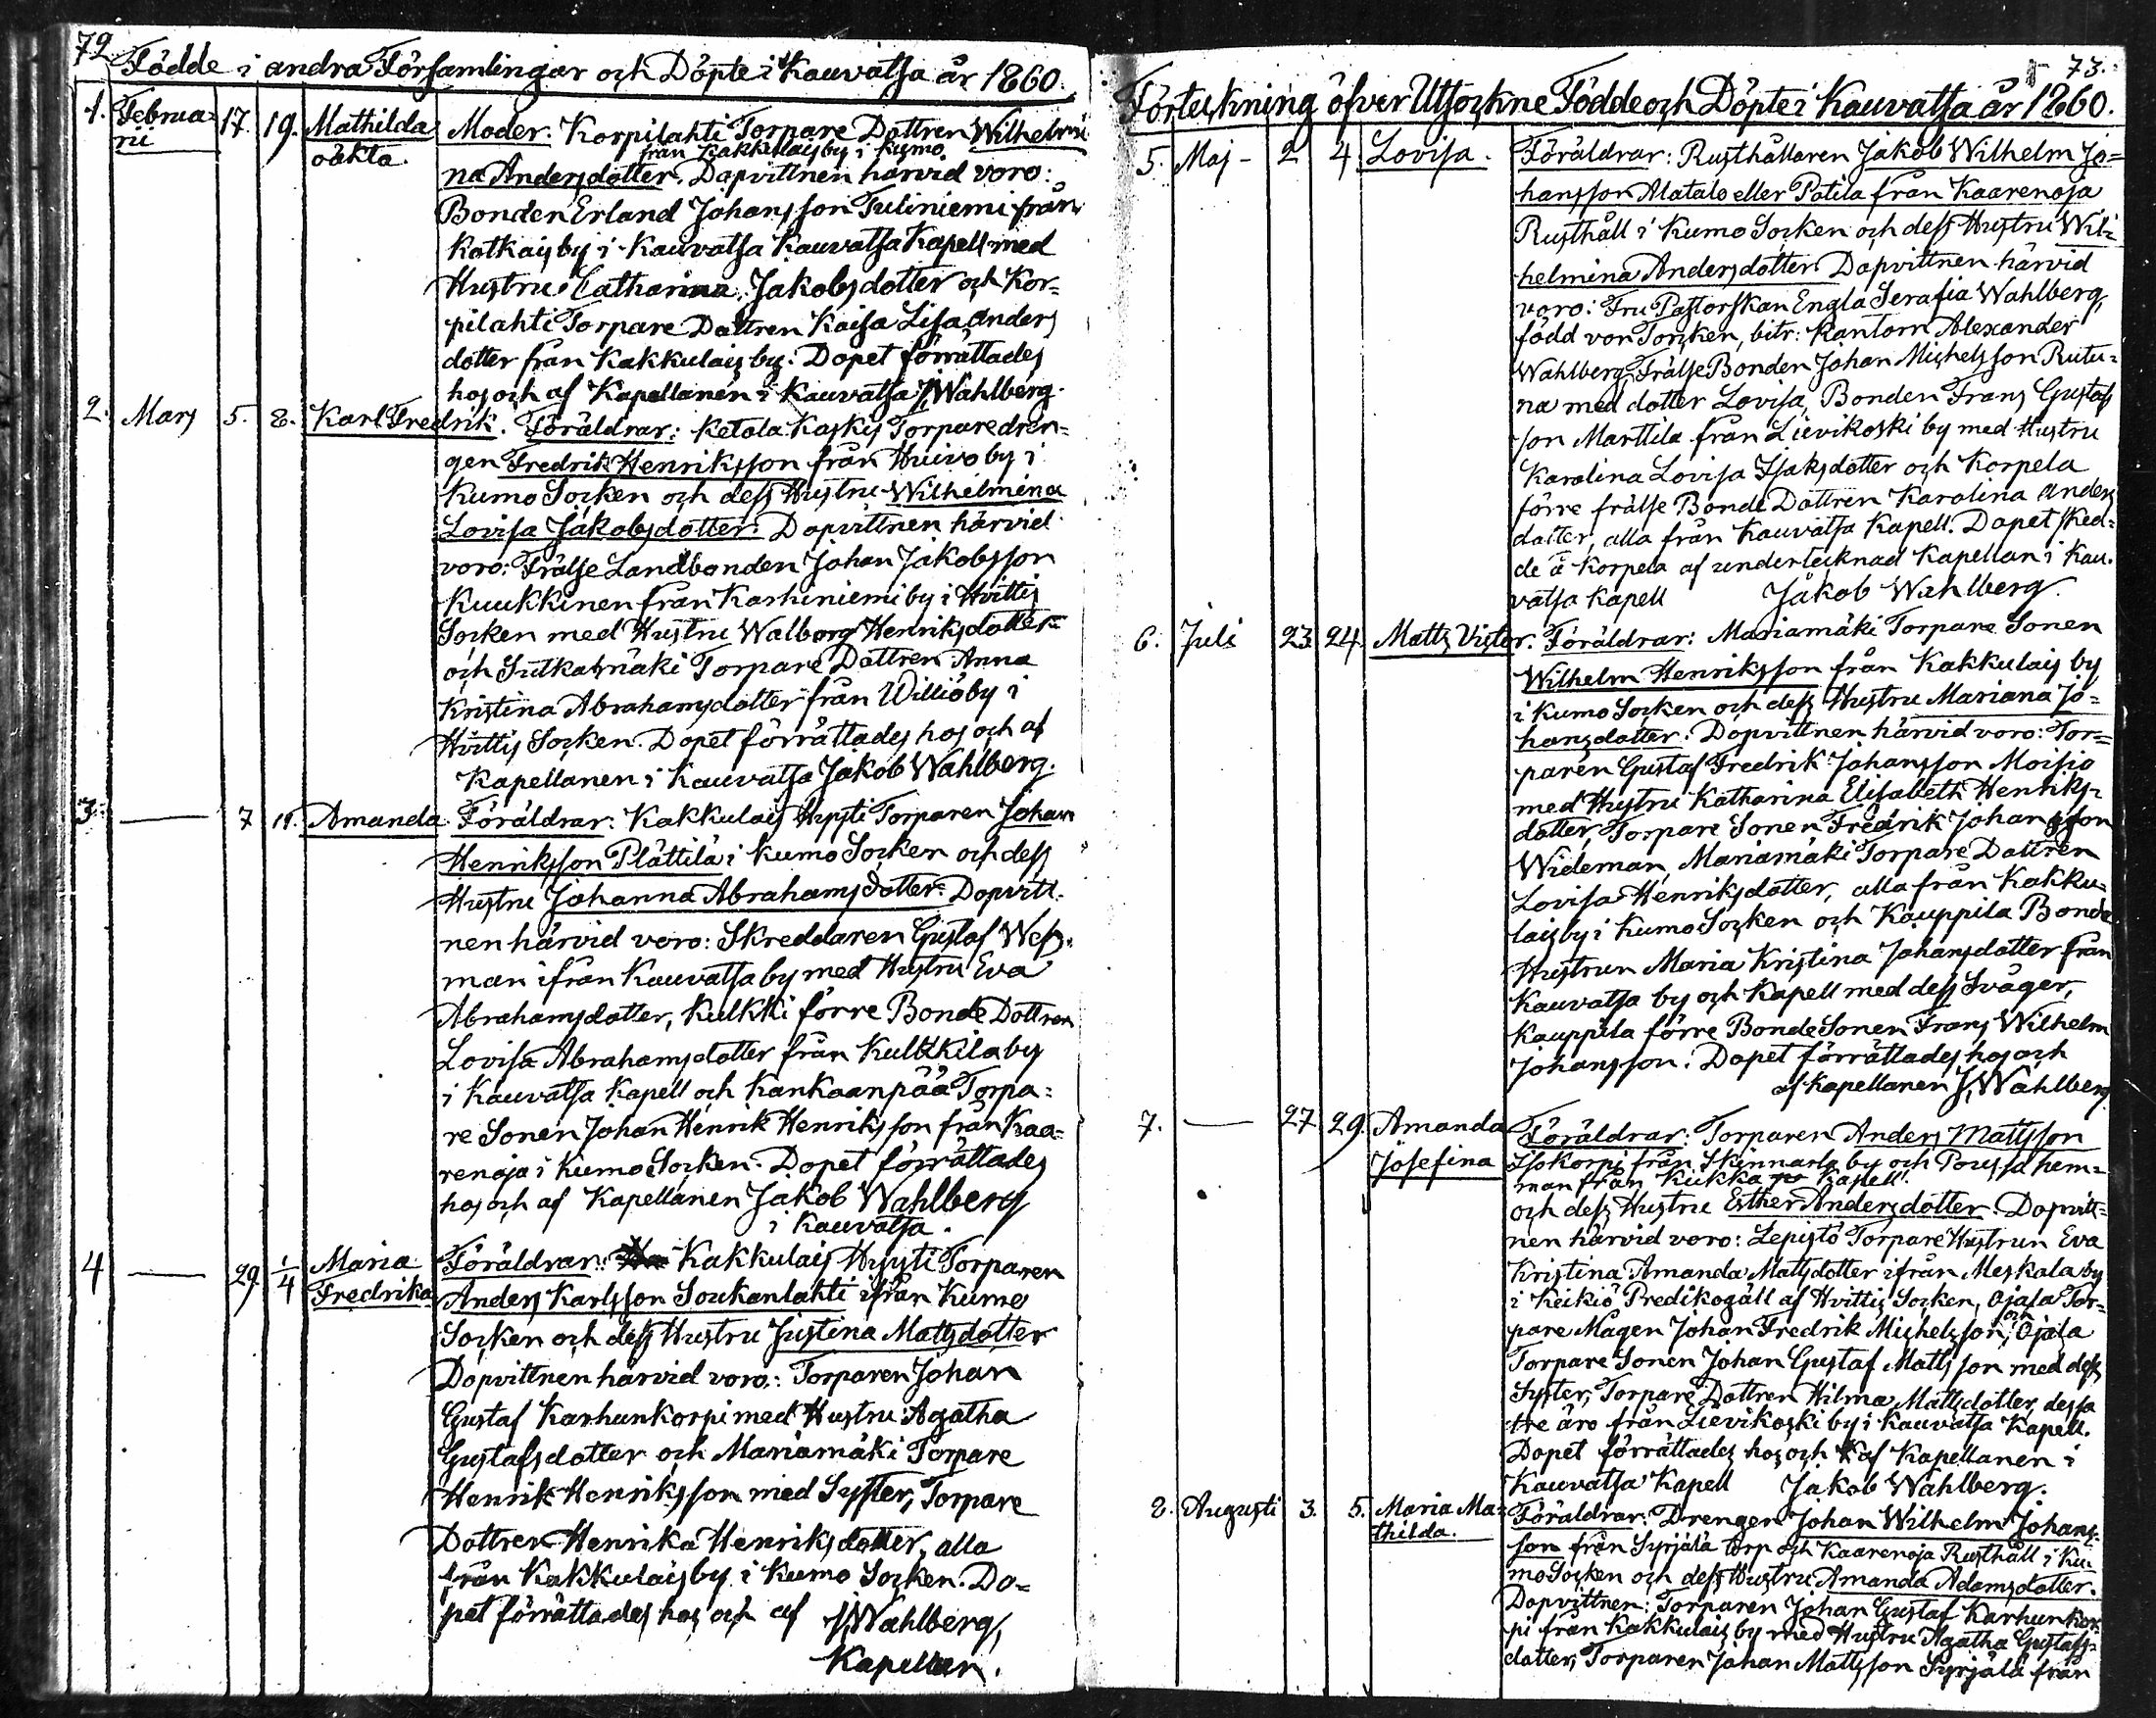 72
Födde i andra Församlingar och Döpte i Kauvatsa år 1860.
1. Februarii 17. 19. Mathilda oäkta.
Moder: Korpilahti Torpare Dottren Wilhelmi
från Kakkulais by i Kumo.
na Andersdotter. Dopvittnen härvid voro:
Bonden Erland Johansson Tuliniemi från
Kotkais by i Kauvatsa Kauvatsa Kapell med
Hustru Catharina Jakobsdotter och Kor=
pilahti Torpare Dottren Kaisa Lisa Anders
dotter från Kakkulais by. Dopet förrättades
hos och af Kapellanen i Kauvatsa J. Wahlberg.
2. Mars 5. 8. Karl Fredrik.
Föräldrar: Ketola Kaskis Torparedren=
gen Fredrik Henriksson från Huivo by i
Kumo Socken och dess Hustru Wilhelmina
Lovisa Jakobsdotter. Dopvittnen härvid
voro: Frälse Landbonden Johan Jakobsson
Kuukkinen från Karhiniemi by i Hvittis
Socken med Hustru Walborg Henriksdotter
och Sutkamäki Torpare Dottren Anna
Kristina Abrahamsdotter från Williö by i
Hvittis Socken. Dopet förrättades hos och af
Kapellanen i Kauvatsa Jakob Wahlberg.
3. — 7 11. Amanda
Föräldrar: Kakkulais Hyyti Torparen Johan
Henriksson Plättilä i Kumo Socken och dess
Hustru Johanna Abrahamsdotter. Dopvitt=
nen härvid voro: Skreddaren Gustaf Wess=
man ifrån Kauvatsa by med Hustru Eva
Abrahamsdotter, Kulkki förre Bonde Dottren
Lovisa Abrahamsdotter från Kulkkila by
i Kauvatsa Kapell och Kankaanpää Torpa=
re Sonen Johan Henrik Henriksson från Kaa=
renoja i Kumo Socken. Dopet förrättades
hos och af Kapellanen Jakob Wahlberg
i Kauvatsa.
4 — 29 1/4 Maria Fredrika
Föräldrar: Kakkulais Hyyti Torparen
Anders Karlsson Soukanlahti ifrån Kumo
Socken och dess Hustru Justina Mattsdotter
Dopvittnen härvid voro: Torparen Johan
Gustaf Karhunkorpi med Hustru Agatha
Gustafsdotter och Mariamäki Torpare
Henrik Henriksson med Syster, Torpare
Dottren Henrika Henriksdotter, alla
från Kakkulais by i Kumo Socken. Do=
pet förrättades hos och af J. Wahlberg,
Kapellan.
73.
Förteckning öfver Utsockne Födde och Döpte i Kauvatsa år 1860.
5. Maj - 2 4 Lovisa.
Föräldrar: Rusthållaren Jakob Wilhelm Jo=
hansson Alatalo eller Potila från Kaarenoja
Rusthåll i Kumo Socken och dess Hustru Wil=
helmina Andersdotter Dopvittnen härvid
voro: Fru Pastorskan Engla Serafia Wahlberg,
född von Torcken, bitr: Kantorn Alexander
Wahlberg, Frälse Bonden Johan Michelsson Rutu=
na med dotter Lovisa, Bonden Frans Gustafs
son Marttila från Lievikoski by med Hustru
Karolina Lovisa Isaksdotter och Korpela
förre frälse Bonde Dottren Karolina Anders
dotter, alla från Kauvatsa Kapell. Dopet sked=
de å Korpela af undertecknad Kapellan i Kau=
vatsa Kapell Jakob Wahlberg.
6. Juli 23 24. Matts Victor.
Föräldrar: Mariamäki Torpare Sonen
Wilhelm Henriksson från Kakkulais by
i Kumo Socken och dess Hustru Mariana Jo=
hansdotter. Dopvittnen härvid voro: Tor=
paren Gustaf Fredrik Johansson Moisio
med Hustru Katharina Elisabeth Henriks=
dotter, Torpare Sonen Fredrik Johansson
Wideman, Mariamäki Torpare Dottren
Lovisa Henriksdotter, alla från Kakku=
lais by i Kumo Socken och Kauppila Bonde
Hustrun Maria Kristina Johansdotter från
Kauvatsa by och Kapell med dess Svåger,
Kauppila förre Bonde Sonen Frans Wilhelm
Johansson. Dopet förrättades hos och
af Kapellanen J. Wahlberg.
7. — 27 29. Amanda Josefina
Föräldrar: Torparen Anders Mattsson
Isokorpi från Skinnarla by och Poussa hem=
man från Kukka Kapell
och dess Hustru Esther Andersdotter. Dopvitt=
nen härvid voro: Lepistö Torpare Hustrun Eva
Kristina Amanda Mattsdotter ifrån Meskala by
i Keikiö Predikogäll af Hvittis Socken, Ojala Tor=
pare Mågen Johan Fredrik Michelsson, och Ojala
Torpare Sonen Johan Gustaf Mattsson med dess
Syster, Torpare Dottren Hilma Mattsdotter, dessa
tre äro från Lievikoski by i Kauvatsa Kapell.
Dopet förrättades hos och af Kapellanen i
Kauvatsa Kapell Jakob Wahlberg.
8. Augusti 3. 5. Maria Ma=thilda.
Föräldrar: Drengen Johan Wilhelm Johans=
son från Syrjälä torp och Kaarenoja Rusthåll i Ku=
mo Socken och dess Hustru Amanda Adamsdotter.
Dopvittnen: Torparen Johan Gustaf Karhunkor=
pi från Kakkulais by med Hustru Agatha Gustafs=
dotter, Torparen Johan Mattsson Syrjälä från